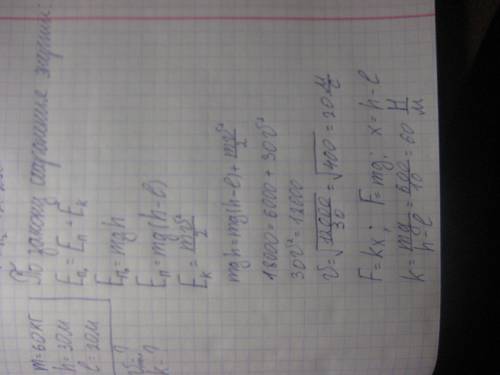 m=60кг
h=30м
l=20м
v-?
k-?
По закону сохранения энергии:
Eп₀=Eп+Eк
Eп₀=mgh
Eп=mg(h-l)
Eк=mv²/2
mgh=mg(h-l)+mv²/2
18000=6000+30v²
30v²=12000
v=√12000/30=√400=20 м/с
F=kx; F=mg; x=h-l
k=mg/h-l=600/10=60 Н/м